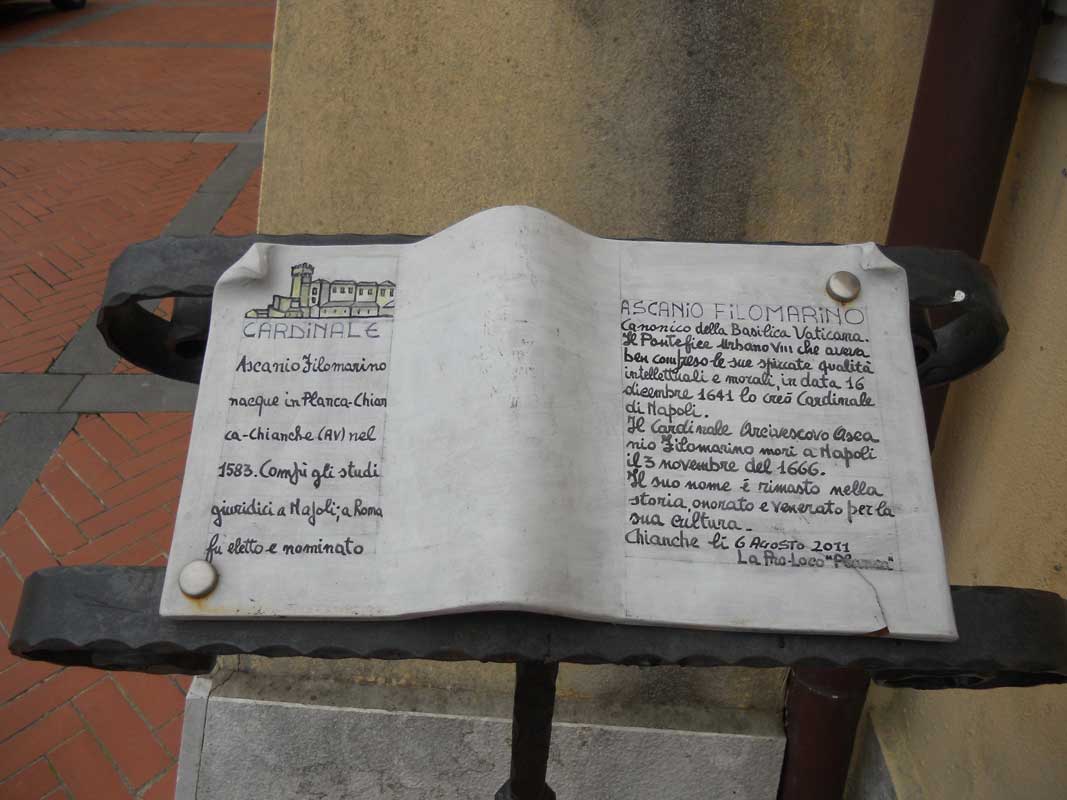 CARDINALE
Ascanio Filomarino
nacque in Planca-Chian
ca-Chianche (AV) nel
1583. Compì gli studi
giuridici a Napoli; a Roma
fu eletto e nominato
ASCANIO FILOMARINO
Canonico della Basilica Vaticana.
Il Pontefice Urbano VIII che aveva
ben compreso le sue spiccate qualità
intellettuali e morali, in data 16
dicembre 1641 lo creò Cardinale
di Napoli.
Il Cardinale Arcivescovo Asca
nio Filomarino morì a Napoli
il 3 novembre del 1666.
Il suo nome é rimasto nella
storia, onorato e venerato per la
sua cultura_
Chianche lì 6 AGOSTO 2011
La Pro-Loco "Planca"